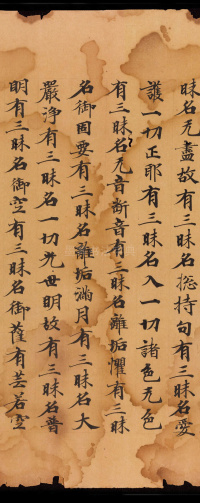 昧名无盡故有三昧名惣持句有三昧名愛
護一切正耶有三昧名入一切諸色无色
有三昧名无音断音有三昧名離垢懼有三昧
名御固要有三昧名離垢滿月有三昧名大
嚴淨有三昧名一切光世明故有三昧名普
明有三昧名御空有三昧名御薩有芸若空